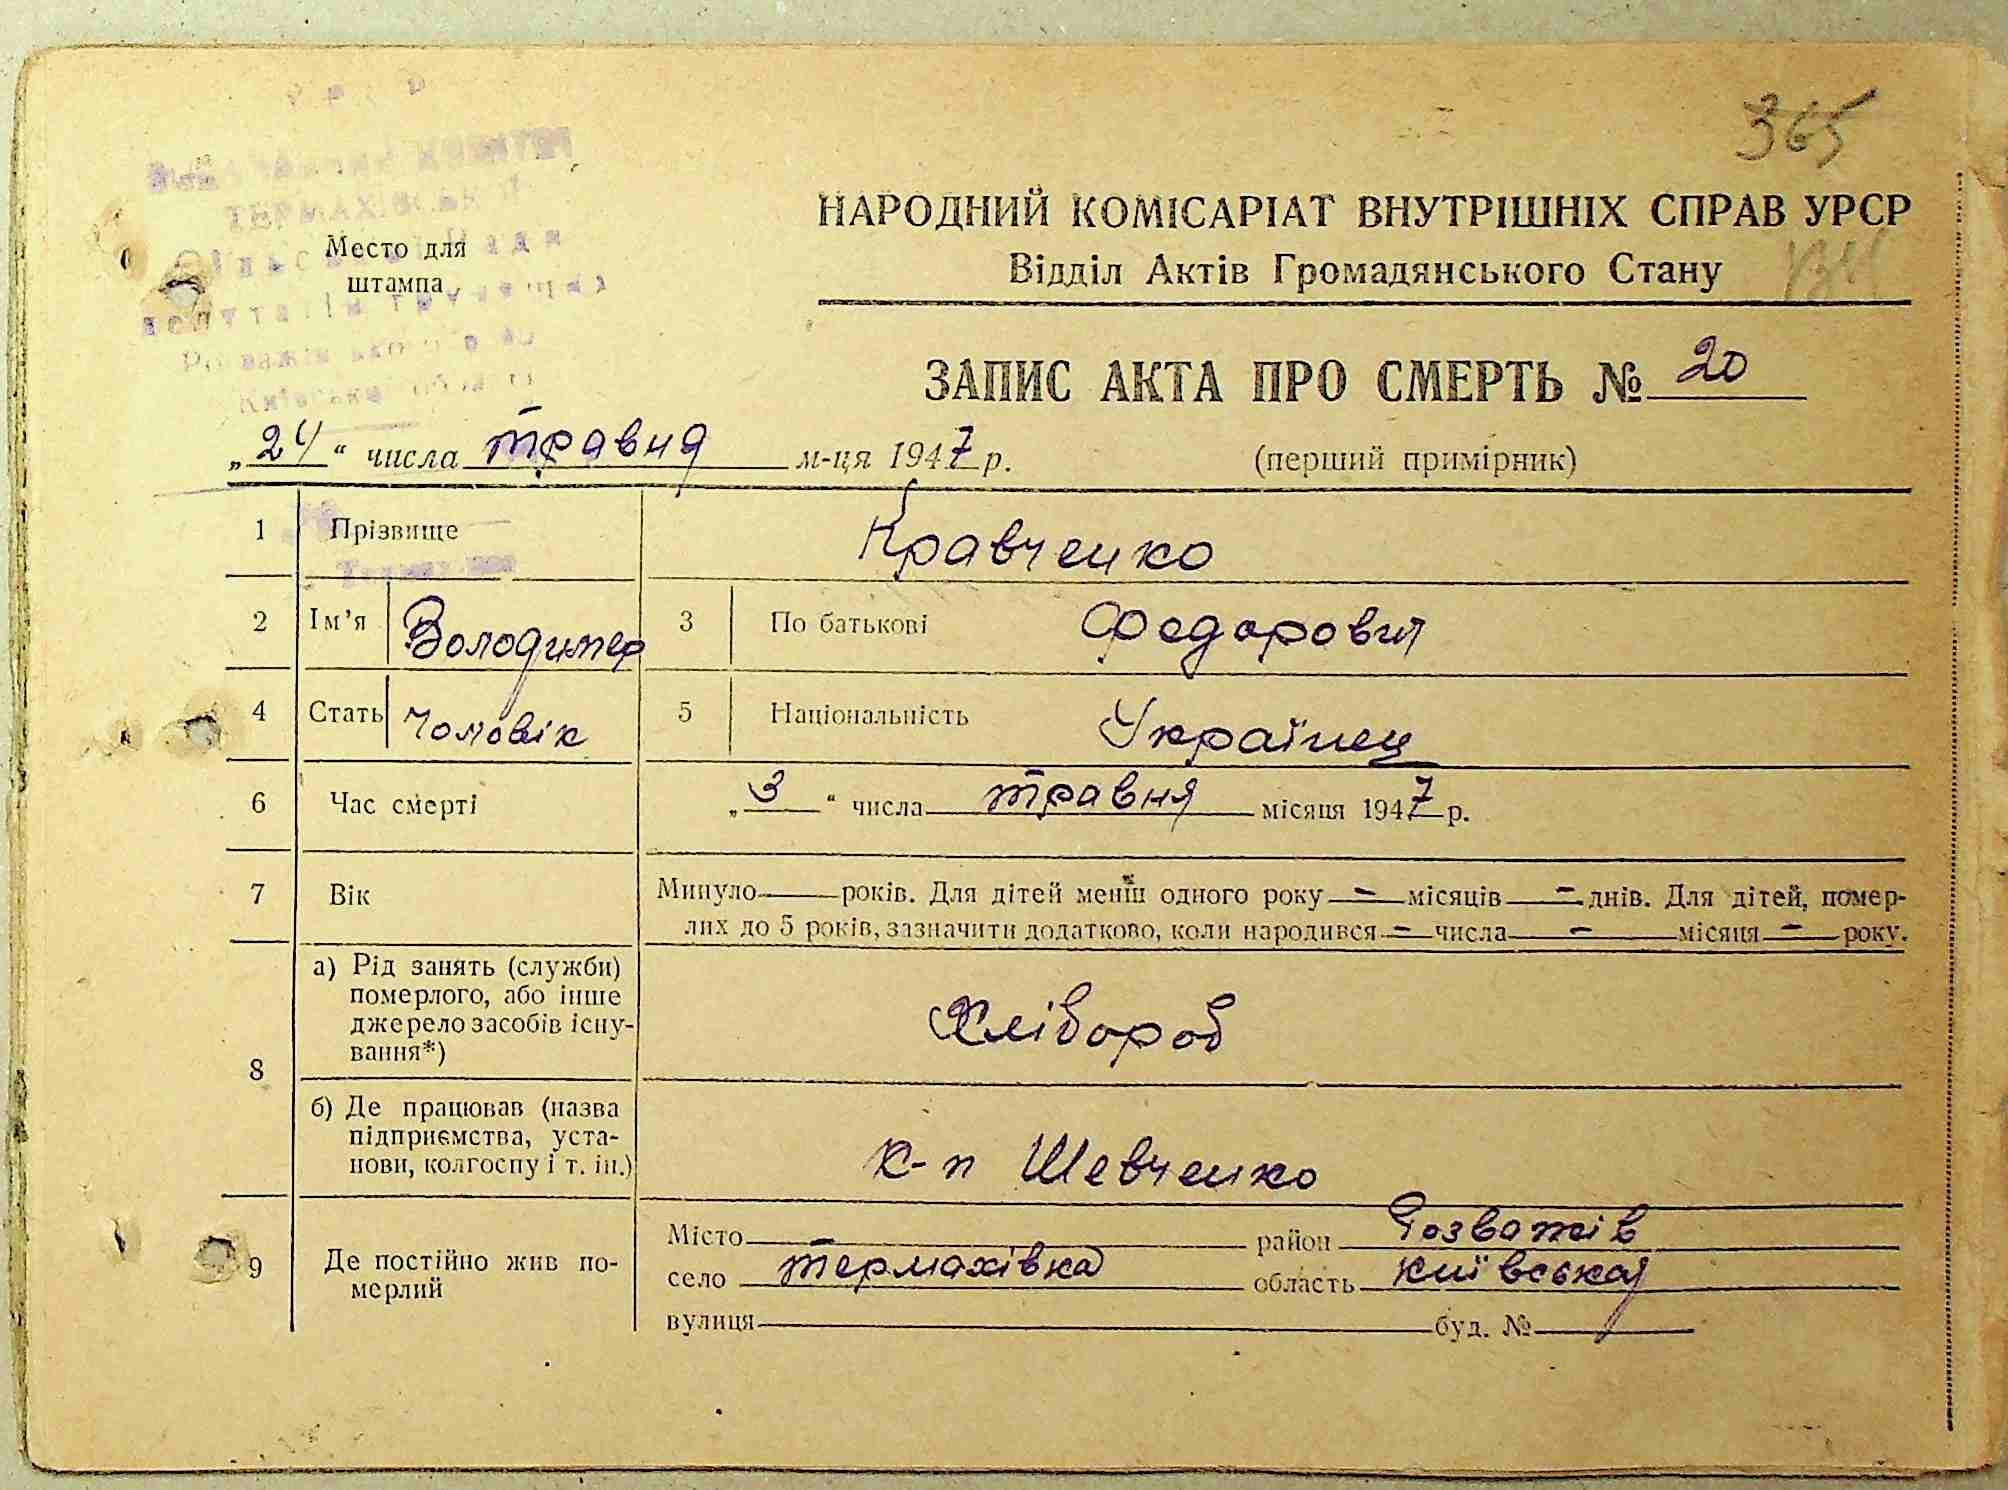 365
ТЕРМАХІВСЬК
Место для
штампа
НАРОДНИЙ КОМІСАРІАТ ВНУТРІШНІХ СПРАВ УРСР
Відділ Актів Громадянського Стану
ЗАПИС АКТА ПРО СМЕРТЬ № 20
„24“ числа травня м-ця 1947 р. (перший примірник)
1 Прізвище Кравченко
2 Ім'я Володимер 3 По батькові Федорович
4 Стать Чоловік 5 Національність Українец
6 Час смерті „3“ числа травня місяця 1947 р.
7 Вік Минуло — років. Для дітей менш одного року – місяців – днів. Для дітей, помер-
лих до 5 років, зазначити додатково, коли народився – числа – місяця – року.
8 а) Рід занять (служби)
померлого, або інше
джерело засобів існу-
вання*)
Хлібороб
б) Де працював (назва
підприємства, уста-
нови, колгоспу і т. ін.)
к-п Шевченко
9 Де постійно жив по-
мерлий
Місто район Розважів
село Термахівка область Київська
вулиця буд. №